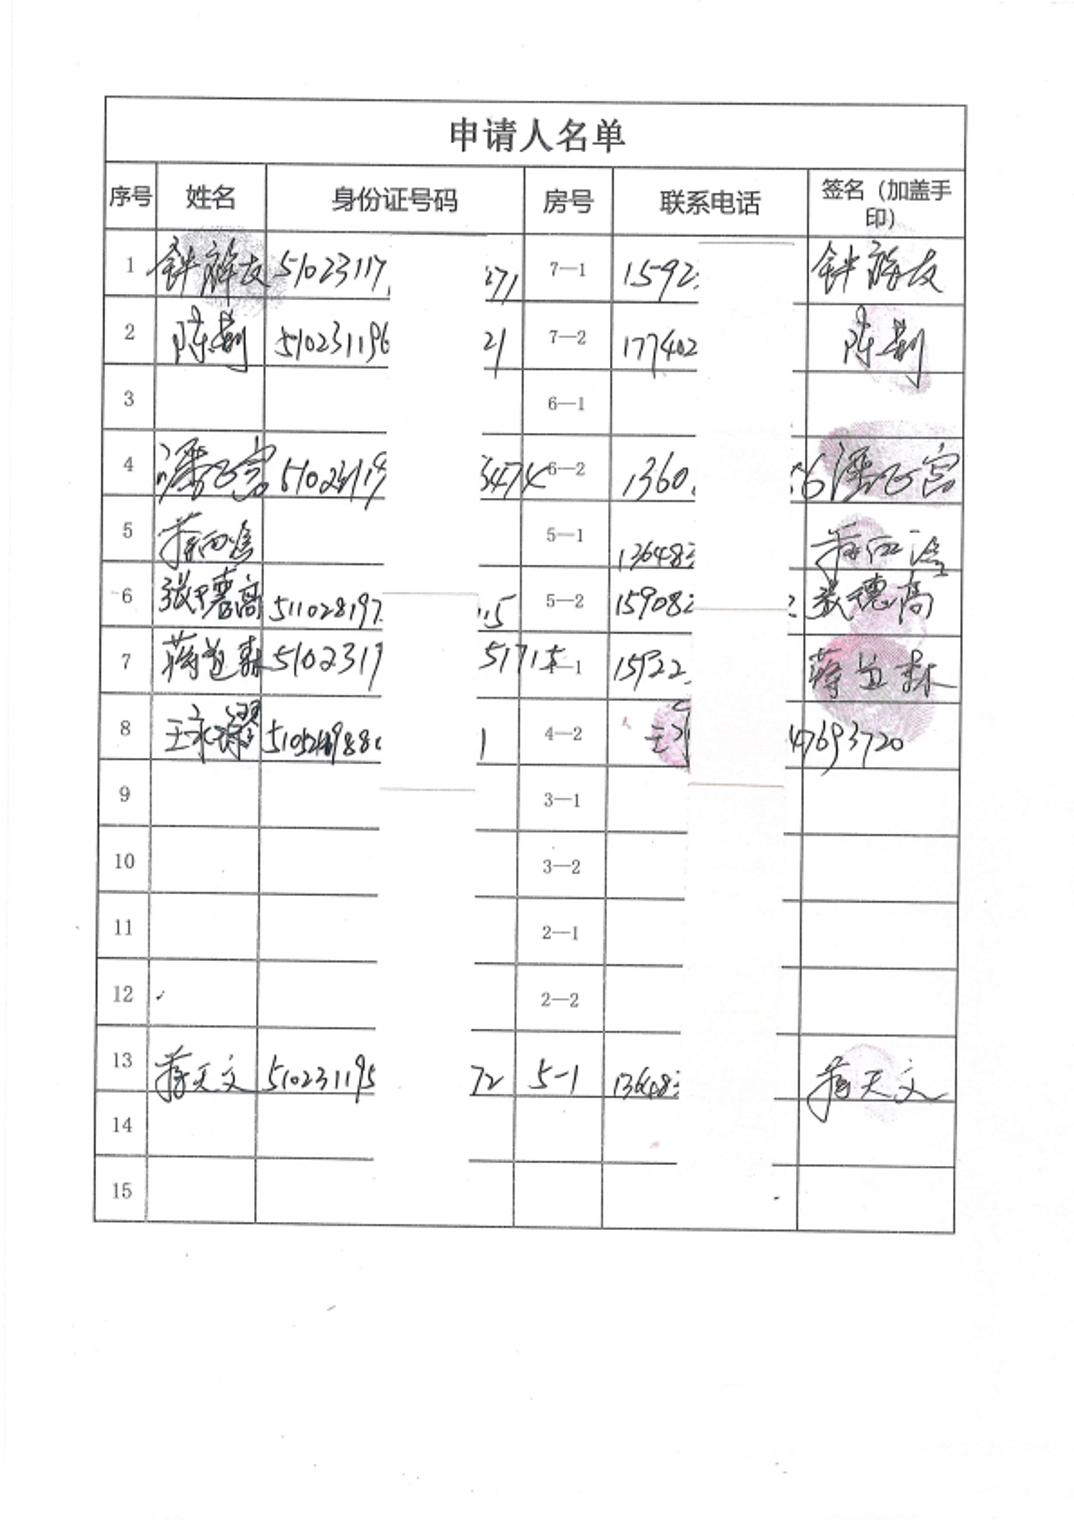 申请人名单
序号 姓名 身份证号码 房号 联系电话 签名（加盖手印）
1 51023117 271 7—1 1592
2 陈 510231196 21 7—2 177402 陈
3 6—1
4 潘正宫 51023119 3474 6—2 1360 6 潘正宫
5 蒋 5—1 136483 蒋
6 张德高 511028197 15 5—2 15908 张德高
7 蒋道森 51023119 51715 —1 15922 蒋道森
8 王永 1 4—2 王 47693720
9 3—1
10 3—2
11 2—1
12 2—2
13 蒋天文 510231195 72 5-1 136483 蒋天文
14
15